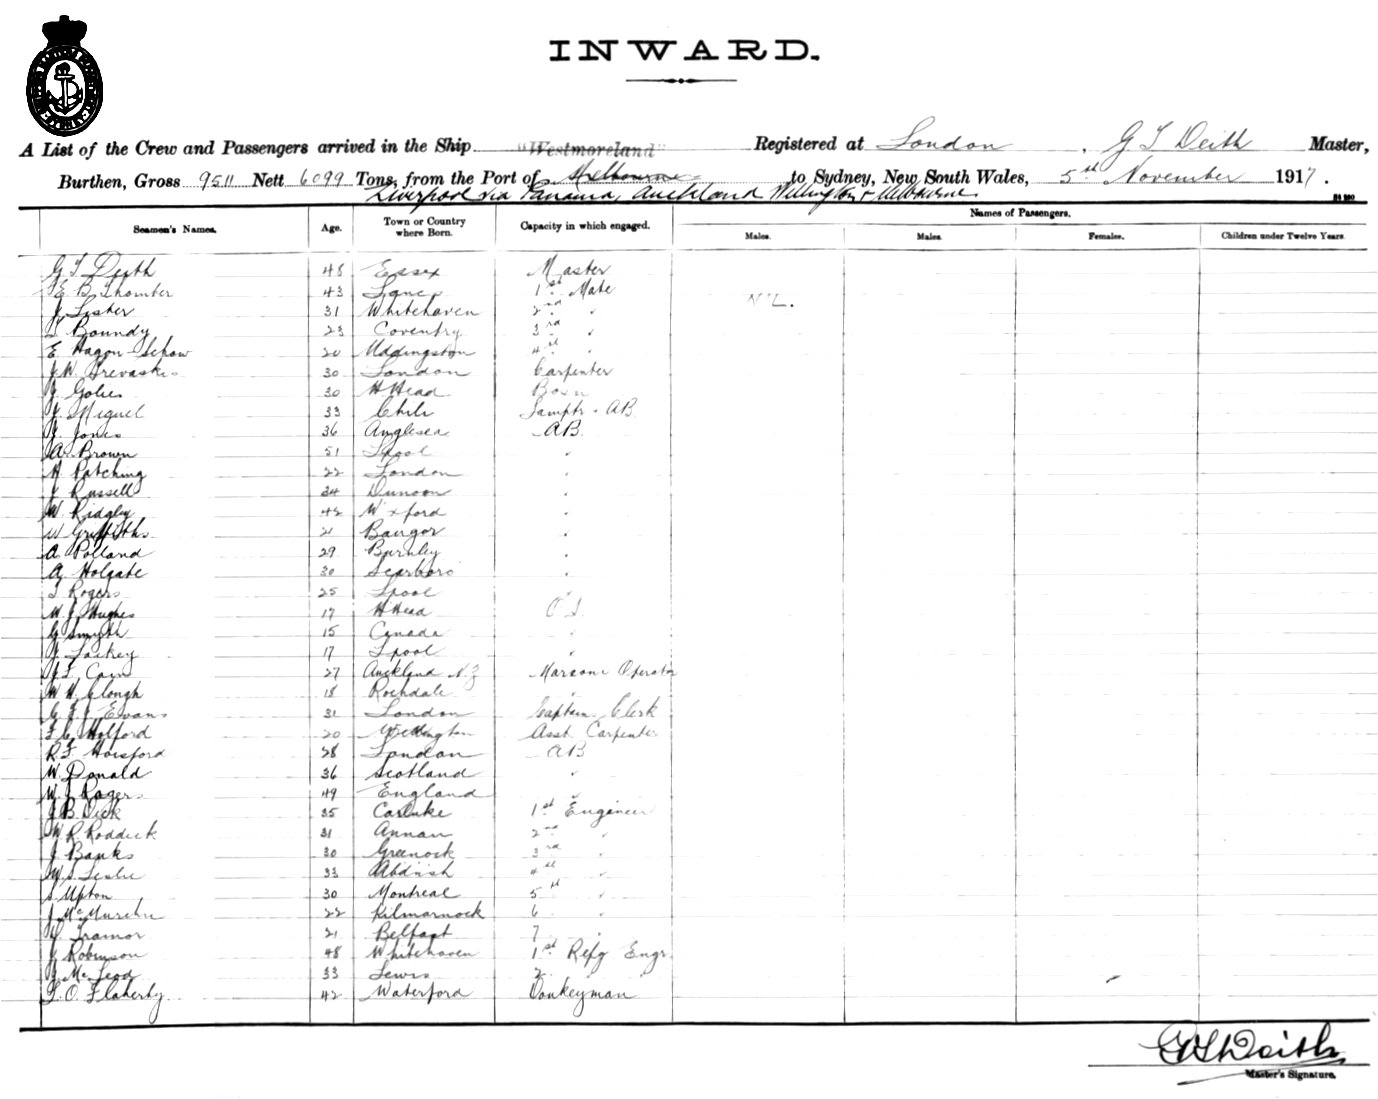 INWARD.
A List of the Crew and Passengers arrived in the Ship "Westmoreland" Registered at London, G T Deith Master,
Burthen, Gross 9511 Nett 6099 Tons, from the Port of Melbourne to Sydney, New South Wales, 5th November 1917.
Liverpool via Panama, Auckland Wellington & Melbourne
Names of Passengers.
Seamen's Names. Age. Town or Country where Born. Capacity in which engaged. Males. Males. Females. Children under Twelve Years.
G T Deith 48 Essex Master
E B Thomber 43 Lancs 1st Mate
NIL.
J Lister 31 Whitehaven 2nd "
T Boundy 23 Coventry 3rd "
E Hagon-Schow 20 Uddingston 4th "
J. W. Trevaskis 30 London Carpenter
J. Golies 30 H Head Bosn
J. Miguel 33 Chili Lamptr - AB
J. Jones 36 Anglesea AB
A. Brown 51 Lpool "
H Patching 22 London "
J Russell 34 Dunoon "
W. Ridgley 42 Wxford "
W Griffiths 21 Bangor "
A Polland 29 Burnley "
A Holgate 30 Scarboro "
T Rogers 25 Lpool "
W. J. Hughes 17 H Head O.S.
G Smyth 15 Canada "
J. Lackey 17 Lpool "
J F Cain 27 Auckland N.Z Marconi Operator
W H Clough 18 Rochdale "
G. J. J. Evans 31 London Captains Clerk
F C Holford 20 Wellington Asst Carpenter
R. F. Horsford 28 London AB
W. Donald 36 Scotland "
W. J. Rogers 49 England "
J B. Dick 35 Carluke 1st Engineer
W R. Roddick 31 Annan 2nd "
J Banks 30 Greenock 3rd "
W. S. Leslie 33 4th "
S. Upton 30 Montreal 5th "
J 22 Kilmarnock 6 "
Tramor 21 Belfast 7 "
J Robinson 48 Whitehaven 1st Refg Engr
J McLeod 33 Lewis 2 "
T. O. Flaherty 42 Waterford Donkeyman
G T Deith
Master's Signature.